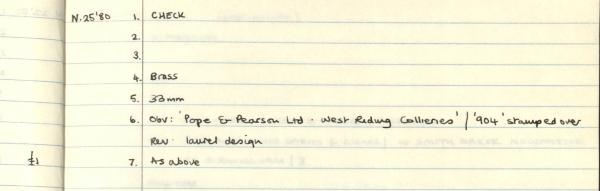 N.25'80 1. CHECK
2.
3.
4. Brass
5. 33mm
6. Obv: 'Pope & Pearson Ltd · West Riding Collieries' / '904' stamped over
Rev. laurel design
£1 7. As above